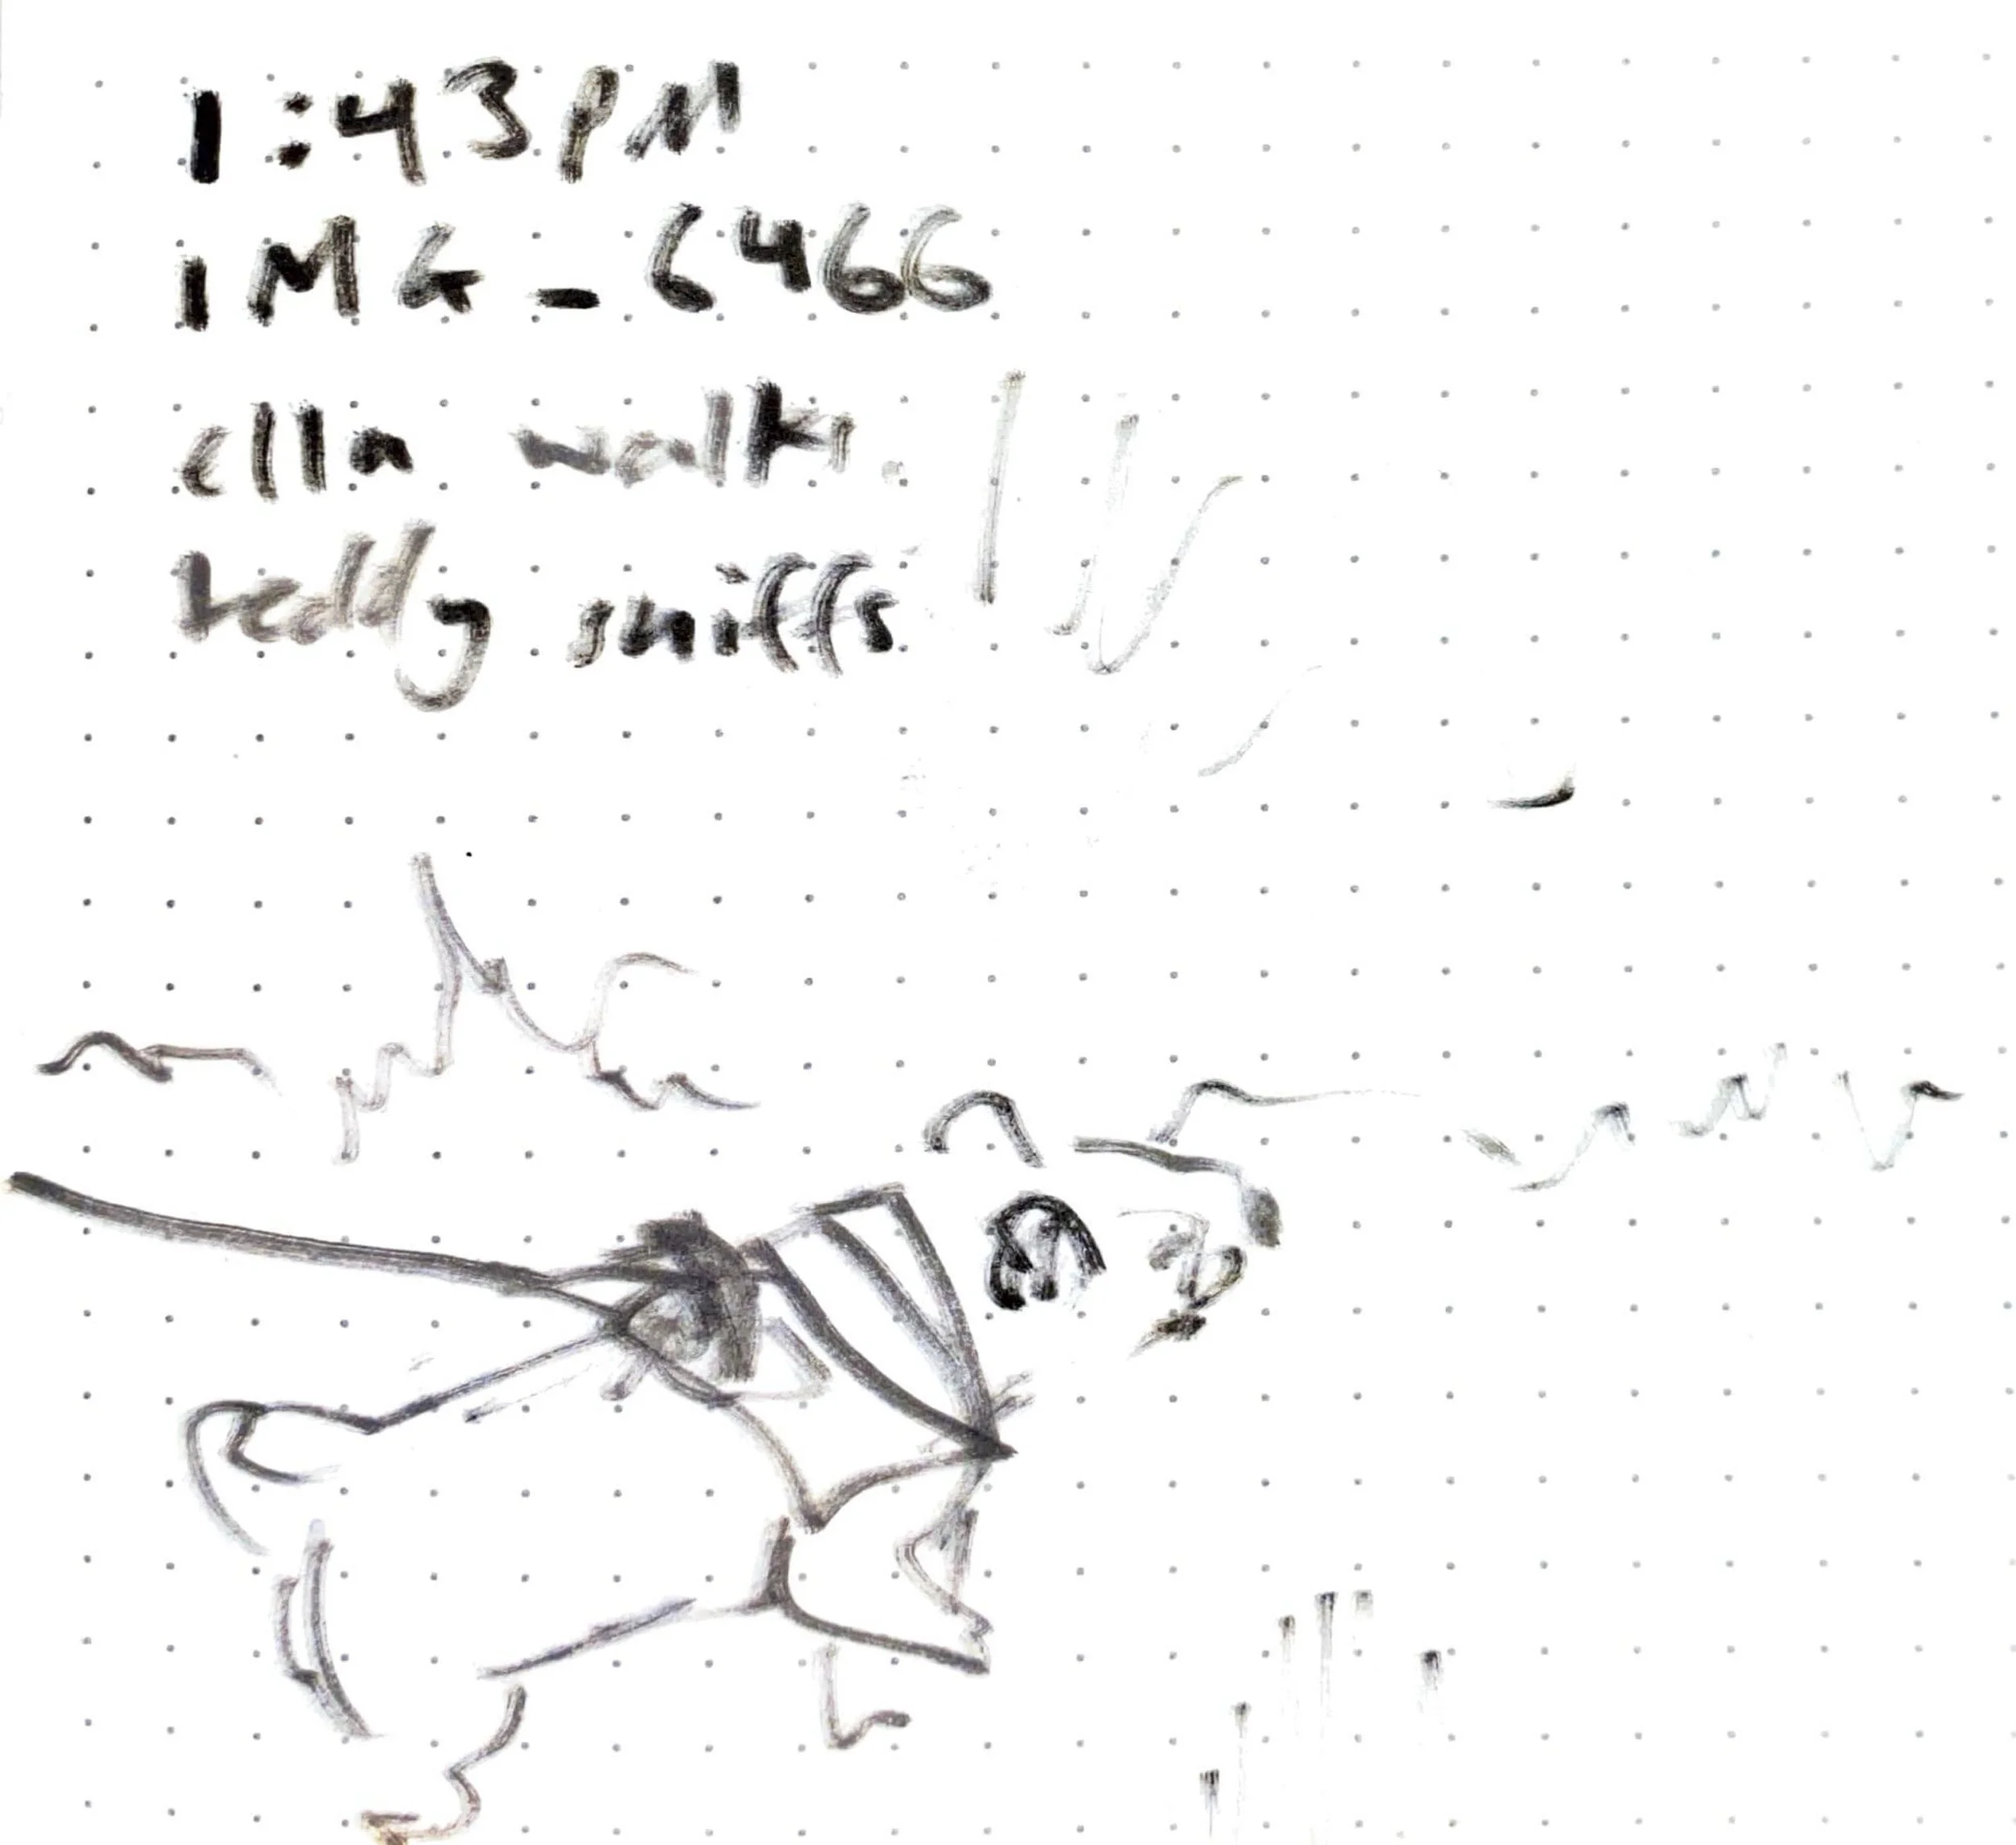 1:43PM
IMG_6466
ella walks.
teddy sniffs